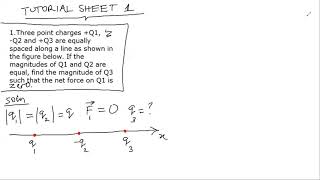 TUTORIAL SHEET 1
1.Three point charges +Q1,
-Q2 and +Q3 are equally
spaced along a line as shown in
the figure below. If the
magnitudes of Q1 and Q2 are
equal, find the magnitude of Q3
such that the net force on Q1 is
zero.
soln
|q₁| = |q₂| = q F⃗₁ = 0 q₃ = ?
q₁ -q₂ q₃ x